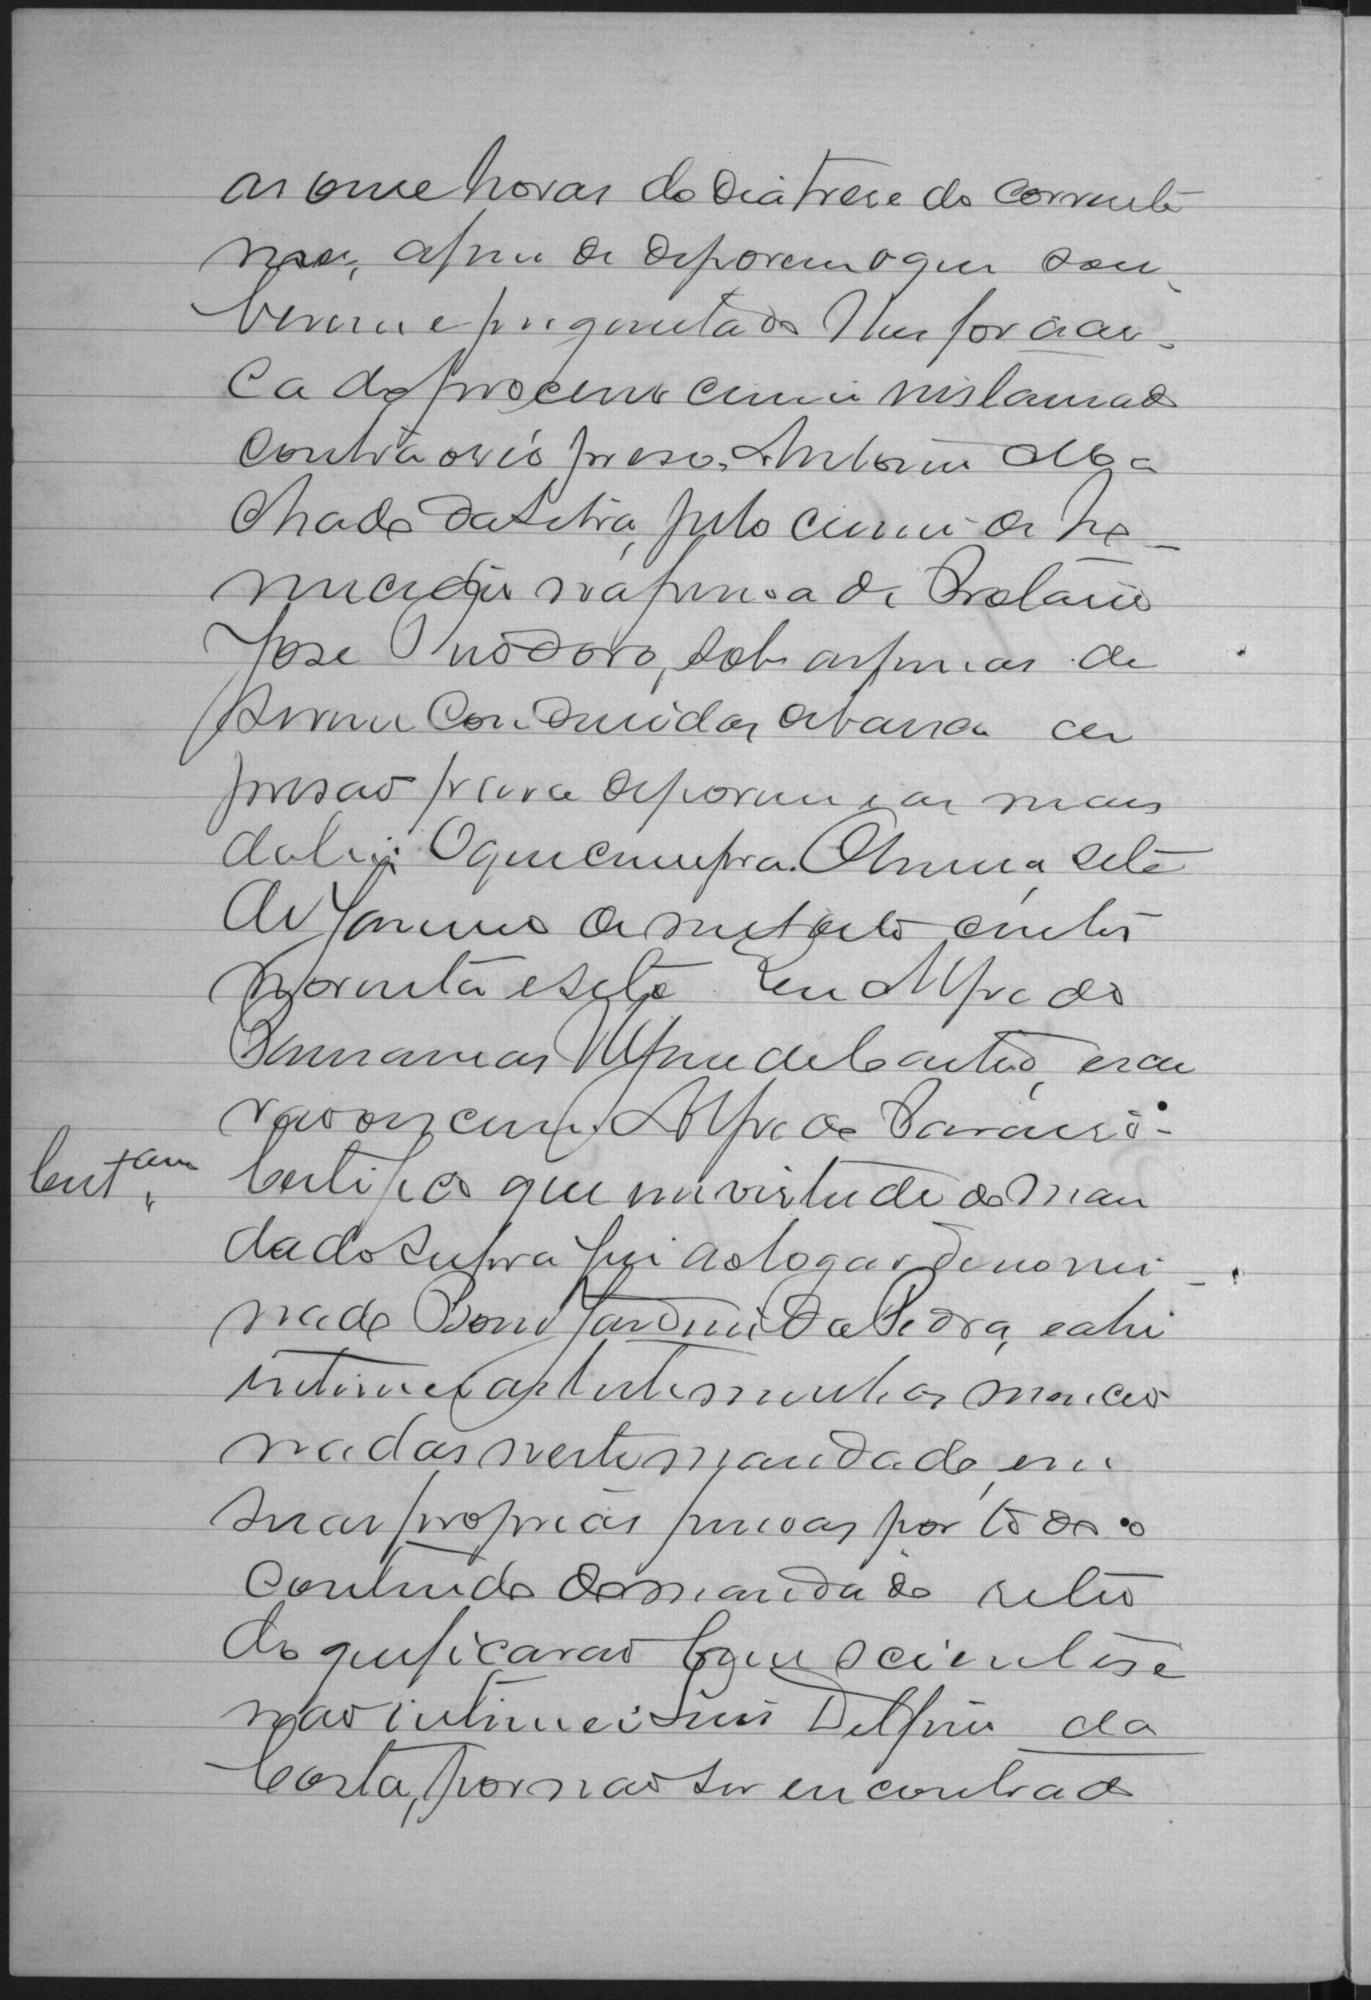 as onze horas do dia treze do corrente
mez, afim de deporem o que sou-
berem e perguntado lhes for ácer-
ca do processo crime instaurado
contra o réo preso, Antonio Ma
chado da Silva, pelo crime de ho-
micidio na pessoa de
José Theodoro, sob as penas de
serem conduzidas debaixo de
prisão para deporem e as mais
da lei. O que cumpra. sete
de Janeiro de mil oito centos
noventa e sete Eu Alfredo
de Castro, escri
vão o escrevi. Alfredo
Certam Certifico que em virtude do man
dado supra fui ao logar denomi-
nado Bom Jardim da Pedra, e ahi
intimei as testemunhas mencio
nadas neste mandado, em
suas proprias pessoas por todo o
contheudo do mandado retro
do que ficarão bem scientes e
não intimei Luis Delfino da
Costa, por não ser encontrado